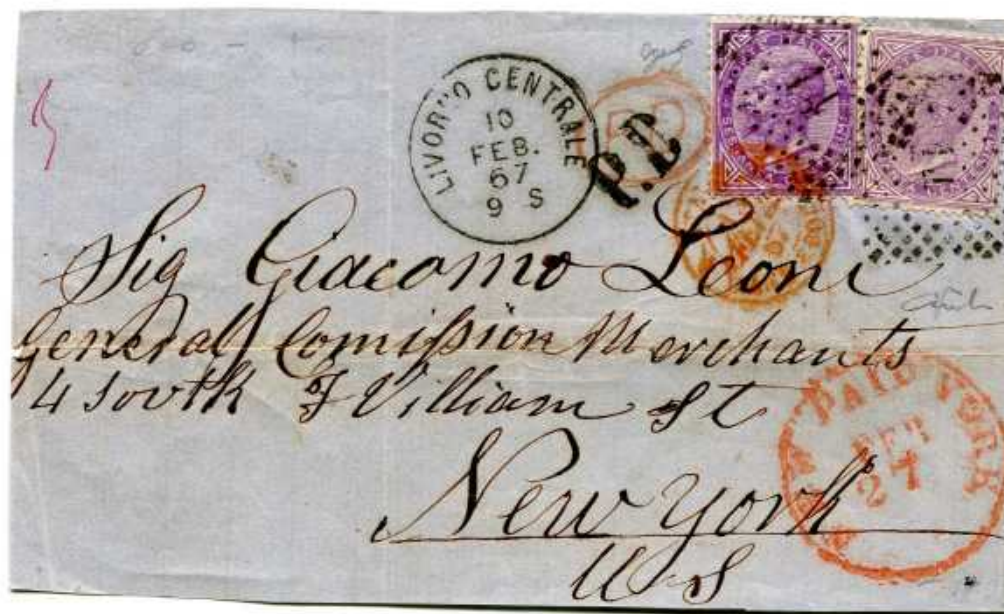 LIVORNO CENTRALE
10
FEB.
67
9 S
P.D.
PD
Sig Giacomo Leoni
General Comission Merchants
4 South William St
New York
U S
NEW PAID YORK
FEB
27